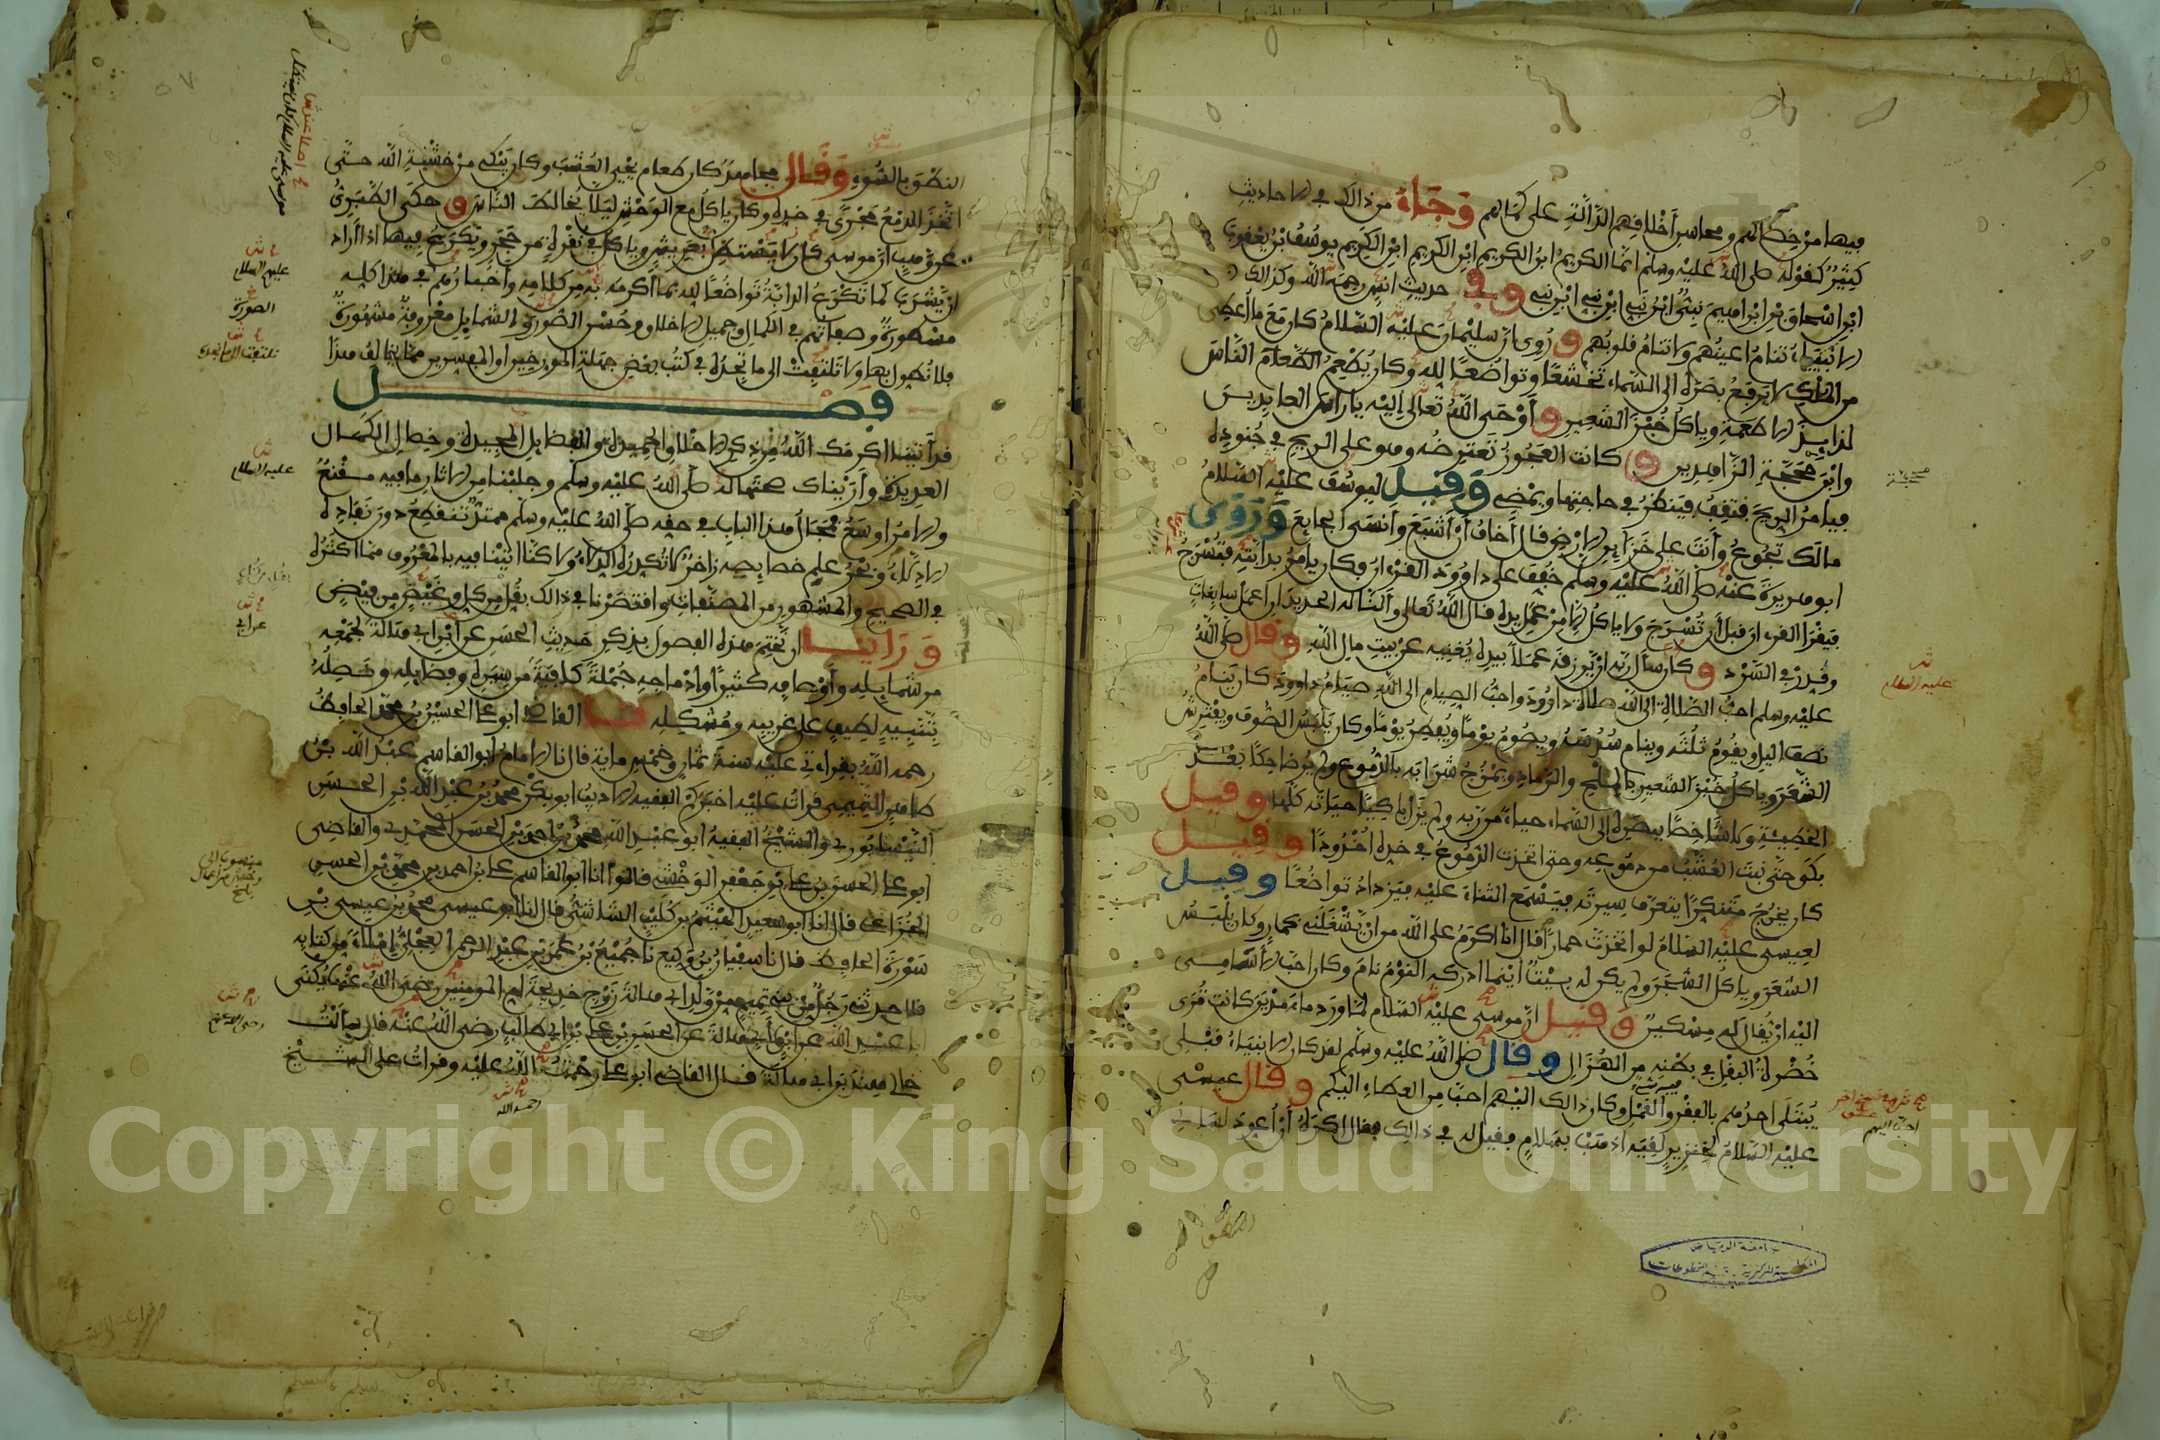 فيها من خصالهم ومحاسن أخلاقهم الدالة على كمالهم وجاء من ذلك في الاحاديث
كثير كقوله صلى الله عليه وسلم انما الكريم ابن الكريم ابن الكريم ابن الكريم يوسف بن يعقوب
ابن اسحاق بن ابراهيم نبي ابن نبي ابن نبي ابن نبي وفي حديث انس رحمه الله وكذلك
الانبياء تنام أعينهم ولا تنام قلوبهم و روي ان سليمان عليه السلام كان مع ما أعطي
من الملك لا يرفع بصره الى السماء تخشعا وتواضعا لله وكان يطعم الطعام الناس
لذايذ الاطعمة وياكل خبز الشعير و أوحى الله تعالى إليه يا راس العابدين
وابن محجة الزاهدين و كانت العجوز تعترضه وهو على الريح في جنوده
فيامر الريح فتقف فينظر في حاجتها ويمضي وقيل ليوسف عليه السلام
مالك تجوع وأنت على خزاين الارض قال أخاف أن أشبع وأنسى الجايع وروى
ابو هريرة عنه صلى الله عليه وسلم خفف على داوود القرءان وكان يامر بدابته فتسرج
فيقرأ القرءان قبل أن تسرج ولا ياكل الا من عمل يده قال الله تعالى وألنا له الحديد أن اعمل سابغات
وقدر في السرد و كان سأل ربه ان يرزقه عملا بيده يغنيه عن بيت مال الله وقال صلى الله
عليه وسلم احب الصلاة الى الله صلاة داوود واحب الصيام الى الله صيام داوود كان ينام
نصف الليل ويقوم ثلثه وينام سدسه ويصوم يوما ويفطر يوما وكان يلبس الصوف ويفترش
الشعر وياكل خبز الشعير بالملح والرماد ويمزج شرابه بالدموع ولم ير ضاحكا بعد
الخطيئة ولا شاخصا ببصره إلى السماء حياء من ربه ولم يزل باكيا حياته كلها وقيل
بكى حتى نبت العشب من دموعه وحتى اتخذت الدموع في خده أخدودا وقيل
كان يخرج متنكرا يتعرف سيرته فيسمع الثناء عليه فيزداد تواضعا وقيل
لعيسى عليه السلام لو اتخذت حمارا قال انا اكرم على الله من ان يشغلني بحمار وكان يلبس
الشعر وياكل الشجر ولم يكن له بيت اينما ادركه النوم نام وكان احب الأسامي
اليه ان يقال له مسكين وقيل ان موسى عليه السلام لما ورد ماء مدين كانت ترى
خضرة البقل في بطنه من الهزال وقال صلى الله عليه وسلم لقد كان الانبياء قبلي
يبتلى احدهم بالفقر والقمل وكان ذلك اليهم احب من العطاء اليكم وقال عيسى
عليه السلام لخنزير لقيه اذهب بسلام فقيل له في ذلك فقال اكره أن أعود لساني
المنطق
محجة
ش
عليه السلام
احب اليهم
جامعة الرياض
المكتبة المركزية - قسم المخطوطات
النطق بالسوء وقال مجاهد كان طعام يحيى العشب وكان يبكي من خشية الله حتى
اتخذ الدمع مجرى في خده وكان ياكل مع الوحش ليلا يخالط الناس و حكى الطبري
عن وهب ان موسى كان يستظل بعريش وياكل في نقرة من حجر ويكرع فيها اذا أراد
أن يشرب كما تكرع الدابة تواضعا لله بما أكرمه به من كلامه وأخبارهم في هذا كله
مسطورة وصفاتهم في الكمال وجميل الاخلاق وحسن الصورة والشمايل معروفة مشهورة
فلا نطول بها ولا تلتفت الى ما تجده في كتب بعض جهلة المورخين والمفسرين مما يخالف هذا
فصل
قد أتيناك اكرمك الله من ذكر الاخلاق الحميدة والفضايل المجيدة وخصال الكمال
العديدة وأريناك صحتها له صلى الله عليه وسلم وجلبنا من الاثار ما فيه مقنع
والامر أوسع فمجال هذا الباب في حقه صلى الله عليه وسلم ممتد تنقطع دون نفاده
الادلاء وبحر علم خصايصه زاخر لا تكدره الدلاء ولاكنا أتينا فيه بالمعروف مما أكثره
في الصحيح والمشهور من المصنفات واقتصرنا في ذلك بقل من كل وغيض من فيض
ورأينا أن نختم هذه الفصول بذكر حديث الحسن عن ابن ابي هالة لجمعه
من شمايله وأوصافه كثيرا وادماجه جملة كافية من سيره وفضايله ونصله
بتنبيه لطيف على غريبه ومشكله نا القاضي ابو علي الحسين بن محمد الحافظ
رحمه الله بقراءتي عليه سنة ثمان وخمس ماية قال نا الامام ابو القاسم عبد الله بن
طاهر التميمي قراءة عليه اخبركم الفقيه الاديب ابو بكر محمد بن عبد الله بن الحسن
النيسابوري والشيخ الفقيه ابو عبد الله محمد بن احمد بن الحسن المحمدي والقاضي
ابو علي الحسن بن علي بن جعفر الوخشي قالوا انا ابو القاسم علي بن احمد بن محمد بن الحسن
الخزاعي قال انا ابو سعيد الهيثم بن كليب الشاشي قال انا ابو عيسى محمد بن عيسى بن
سورة الحافظ قال نا سفيان بن وكيع نا جميع بن عمر بن عبد الرحمن العجلي إملاء من كتابه
قال حدثني رجل من بني تميم من ولد ابي هالة زوج خديجة ام المومنين رضي الله عنها يكنى
ابا عبد الله عن ابن لأبي هالة عن الحسن بن علي بن ابي طالب رضي الله عنه قال سألت
خالي هند بن ابي هالة قال القاضي ابو علي رحمت الله عليه وقرات على الشيخ
رحمه الله
عليهم السلام
الصورة
عليه السلام